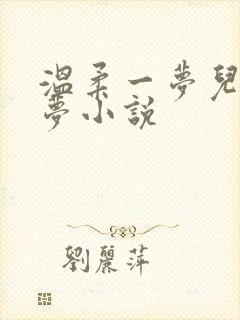 溫柔一夢兒
夢小説
劉麗萍